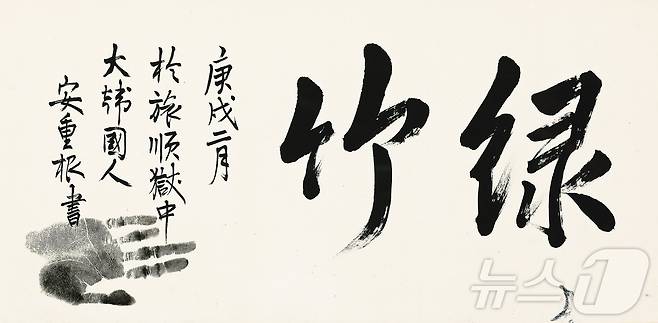 綠竹
庚戌二月
於旅順獄中
大韓國人
安重根書
뉴스1